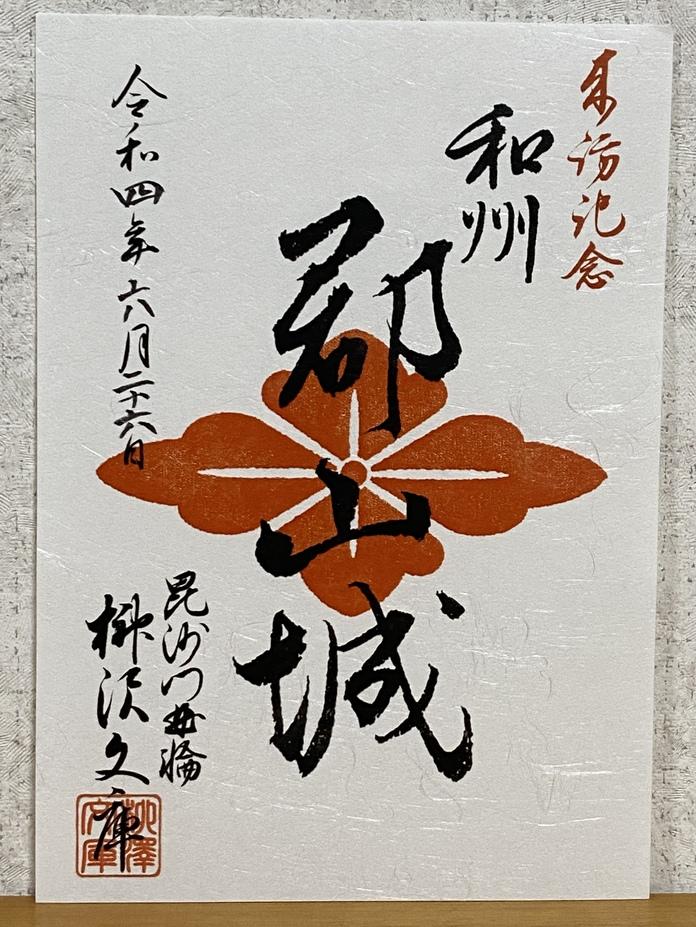 来訪記念
和州
郡山城
令和四年六月二十六日
毘沙門曲輪
柳沢文庫
柳澤文庫